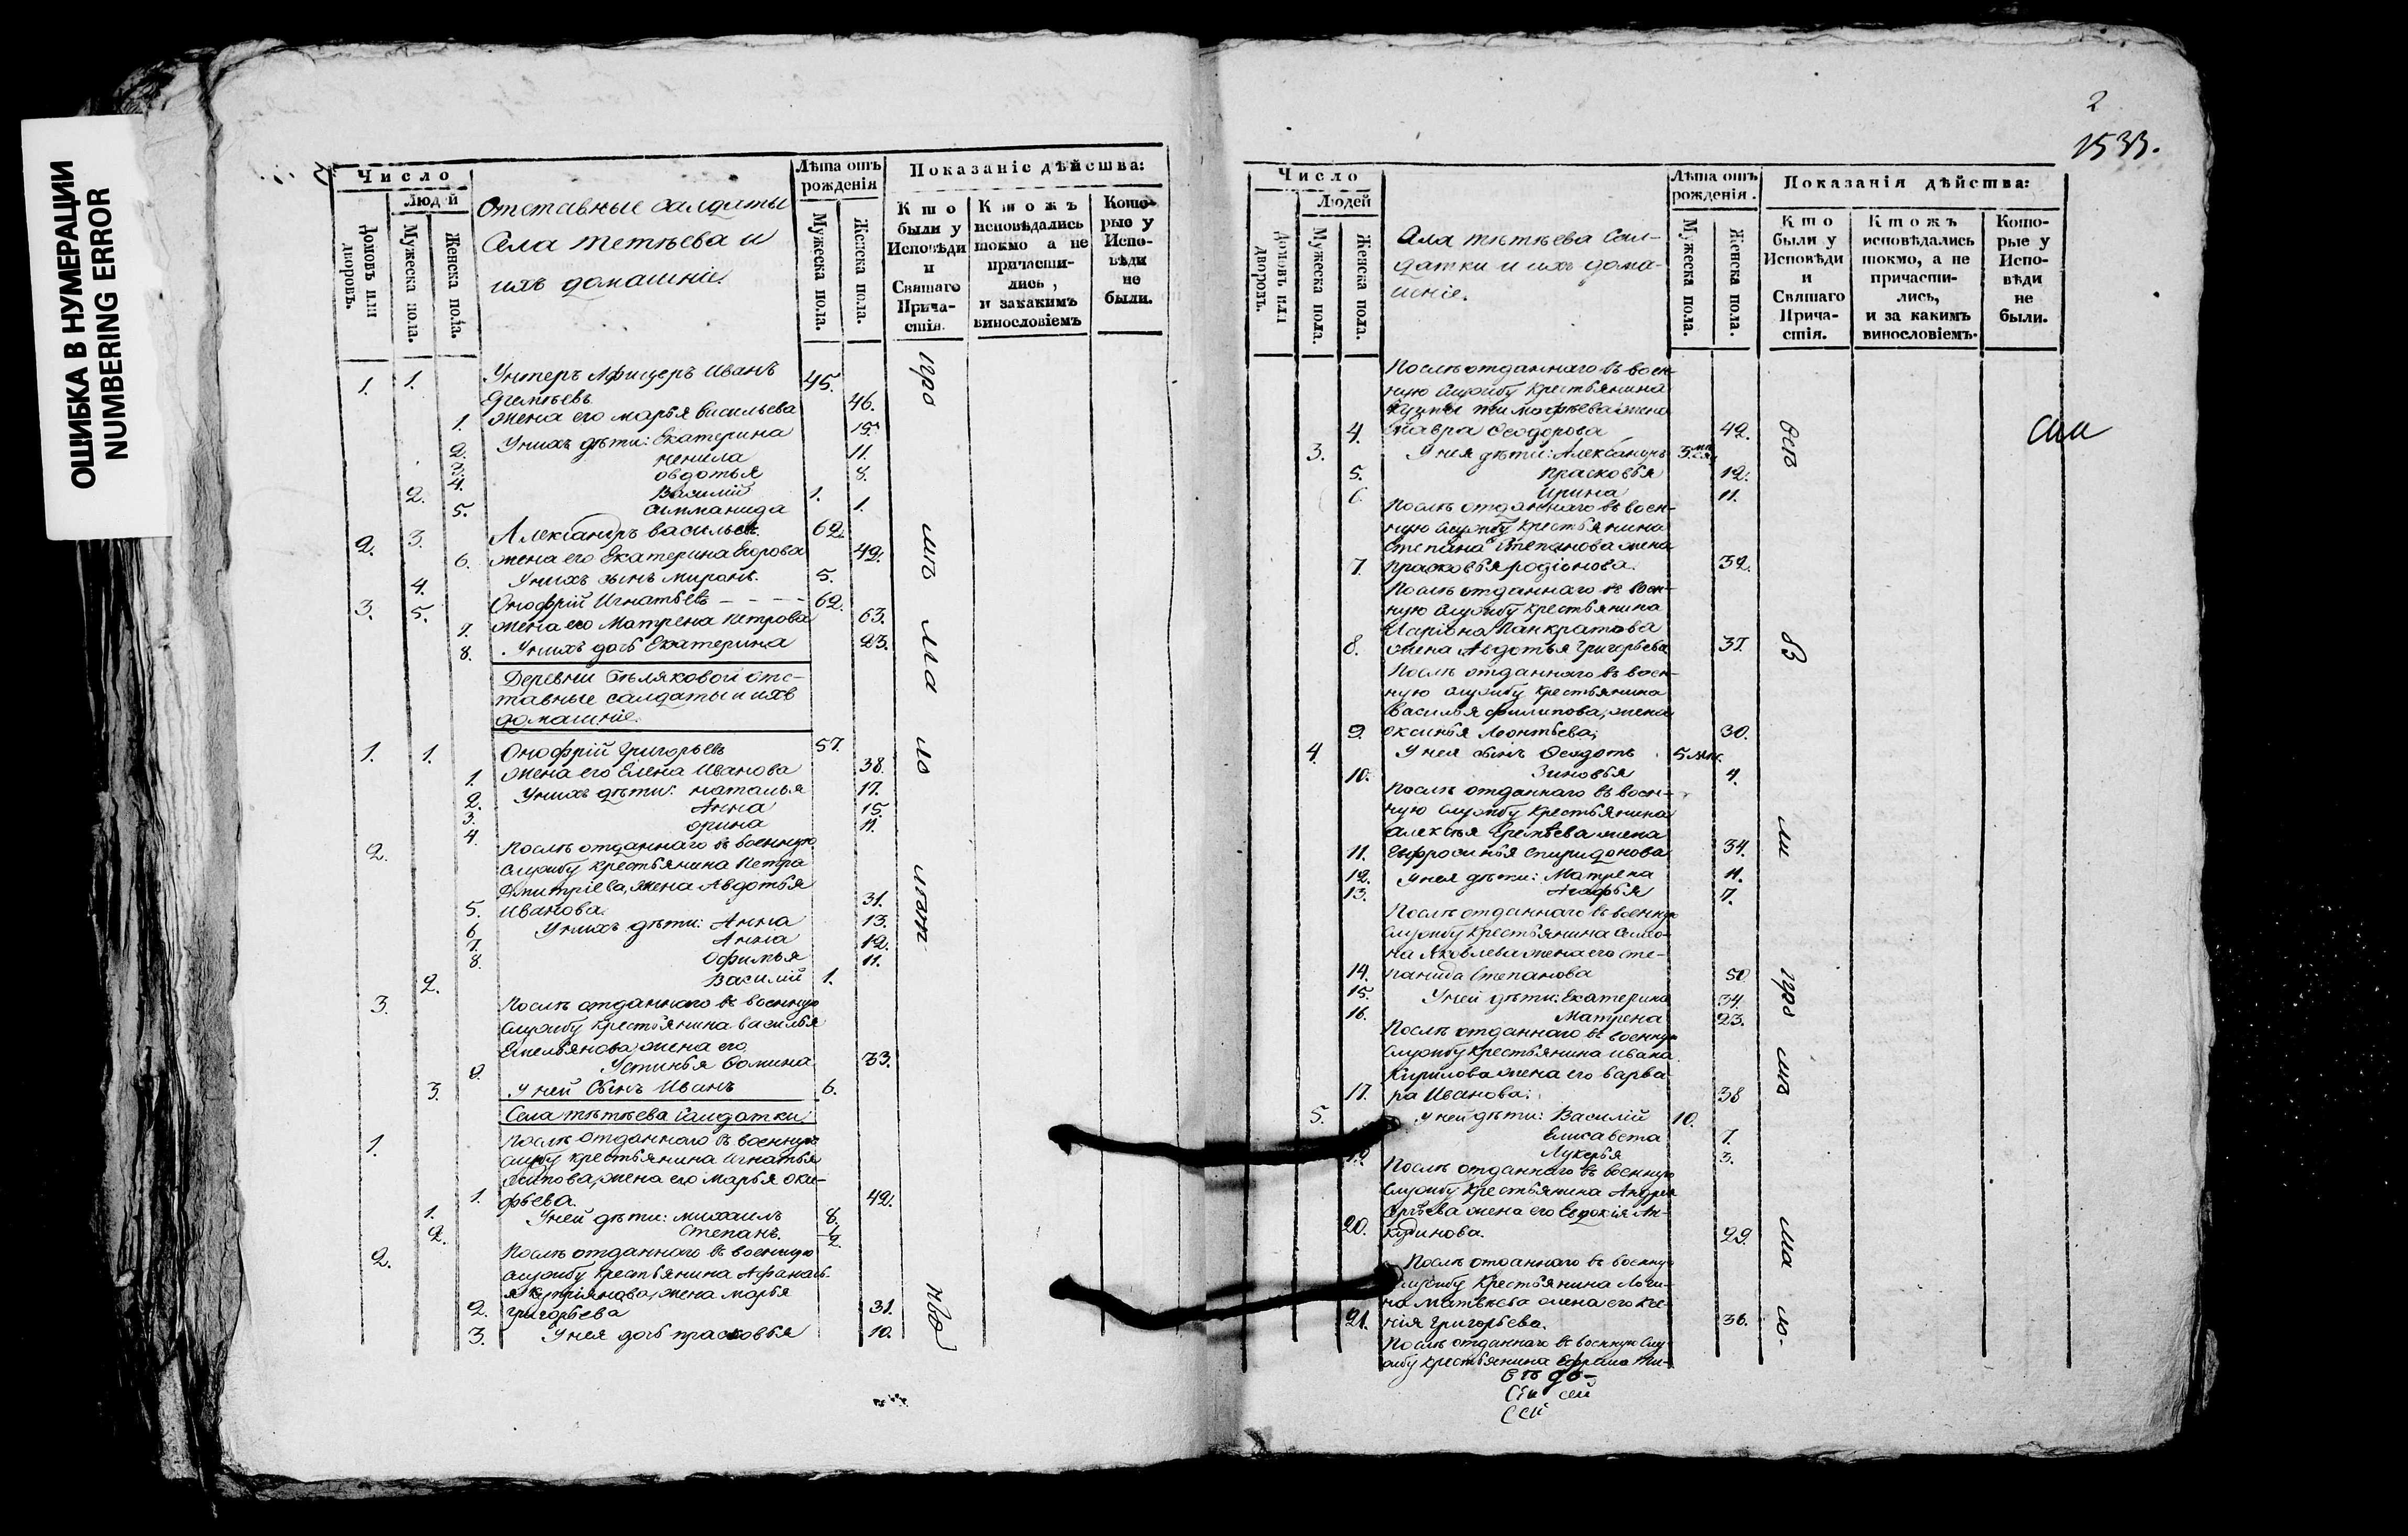 ОШИБКА В НУМЕРАЦИИ
NUMBERING ERROR
Число
Людей
Домовъ или дворовъ.
Мужеска пола.
Женска пола.
Отставные салдаты
Села тетѣева и
ихъ домашніе.
Лѣта отъ рожденія
Мужеска пола.
Женска пола.
Показаніе дѣйства:
Кто были у Исповѣди и Святаго Прича-стія.
Ктожъ исповѣдались токмо а не причасти-лись, и закакимъ винословіемъ
Кото-рые у Испо-вѣди не были.
1. 1. Унтеръ Афицеръ Иванъ 45.
1. жена его марья васильева 46.
2. Унихъ дѣти: Екатерина 15.
3. 11.
4. овдотья 8.
2. Василій 1.
5. 1.
2. 3. Александръ васильевъ 62.
6. жена его Екатерина Егорова 42.
4. Унихъ сынъ миронъ. 5.
3. 5. Онофрій Игнатьевъ - - - - 62.
7. жена его Матрена петрова 63.
8. Унихъ дочь Екатерина 23.
Деревни Бѣляковой отс-
тавные салдаты и ихъ
домашніе.
1. 1. Онофрій Григорьевъ 57.
1. жена его Елена Иванова 38.
2. Унихъ дѣти: наталья 17.
3. Анна 15.
4. орина 11.
2. Послѣ отданнаго въ военную
службу крестьянина Петра
Дмитріева, жена Авдотья
5. Иванова. 31.
6. Унихъ дѣти: Анна 13.
7. Анна 12.
8. Офимья 11.
2. Василій 1.
3. Послѣ отданнаго въ военную
службу крестьянина василья
Емельянова жена его
9. Устинья Фомина 33.
3. У ней Сынъ Иванъ 6.
Села тѣтѣева Салдатки
1. Послѣ отданнаго въ военную
службу крестьянина Игнатья
жена его Марья оки-
1. фьева. 42.
1. Уней дѣти: михаилъ 8.
2. Степанъ. 2.
2. Послѣ отданнаго въ военную
службу крестьянина Афанась-
я купріянова, жена марья
2. григорьева 31.
3. Унея дочь прасковья 10.
2
1533.
Число
Людей
Домовъ или дворовъ.
Мужеска пола.
Женска пола.
Села тѣтѣева Сал-
датки и ихъ дома-
шніе.
Лѣта отъ рожденія.
Мужеска пола.
Женска пола.
Показанія дѣйства:
Кто были у Исповѣди и Святаго Прича-стія.
Ктожъ исповѣдались токмо, а не причасти-лись, и за какимъ винословіемъ.
Кото-рые у Испо-вѣди не были.
Послѣ отданнаго въ воен-
ную службу крестьянина
кузмы тимофѣева жена
4. мавра Феодорова 42.
3. Унея дѣти: Александръ
5. прасковья 12.
6. Ирина 11.
Послѣ отданнаго въ воен-
ную службу крестьянина
Степана Степанова жена
7. прасковья родіонова. 32.
Послѣ отданнаго въ воен-
ную службу крестьянина
Ларіона Панкратова
8. жена Авдотья Григорьева 37.
Послѣ отданнаго въ воен-
ную службу крестьянина
Василья филипова, жена
9. оксинья Леонтьева; 30.
4. Унея сынъ Федотъ
10. Зиновья 4.
Послѣ отданнаго въ воен-
ную службу крестьянина
алексѣя жена
11. Еыфросинья спиридонова 34.
12. Унея дѣти: Матрена 11.
13. Агафья 7.
Послѣ отданнаго въ военную
службу крестьянина Симо-
на Яковлева жена его сте-
14. панида Степанова 50
15. Уней дѣти: Екатерина 34.
16. Матрена 23.
Послѣ отданнаго въ военную
службу крестьянина ивана
Кирилова жена его варва-
17. ра Иванова; 38
5. Уней дѣти: Василій 10.
Елисавета 7.
19. Лукерья 3.
Послѣ отданнаго въ военную
службу крестьянина Андрея
жена его Евдокія Ан-
20. кудинова. 29.
Послѣ отданнаго въ военную
службу крестьянина Логи-
на Матвѣева жена его ксе-
21. нія Григорьева. 36.
Послѣ отданнаго въ военную слу-
жбу крестьянина Ефрема ти-